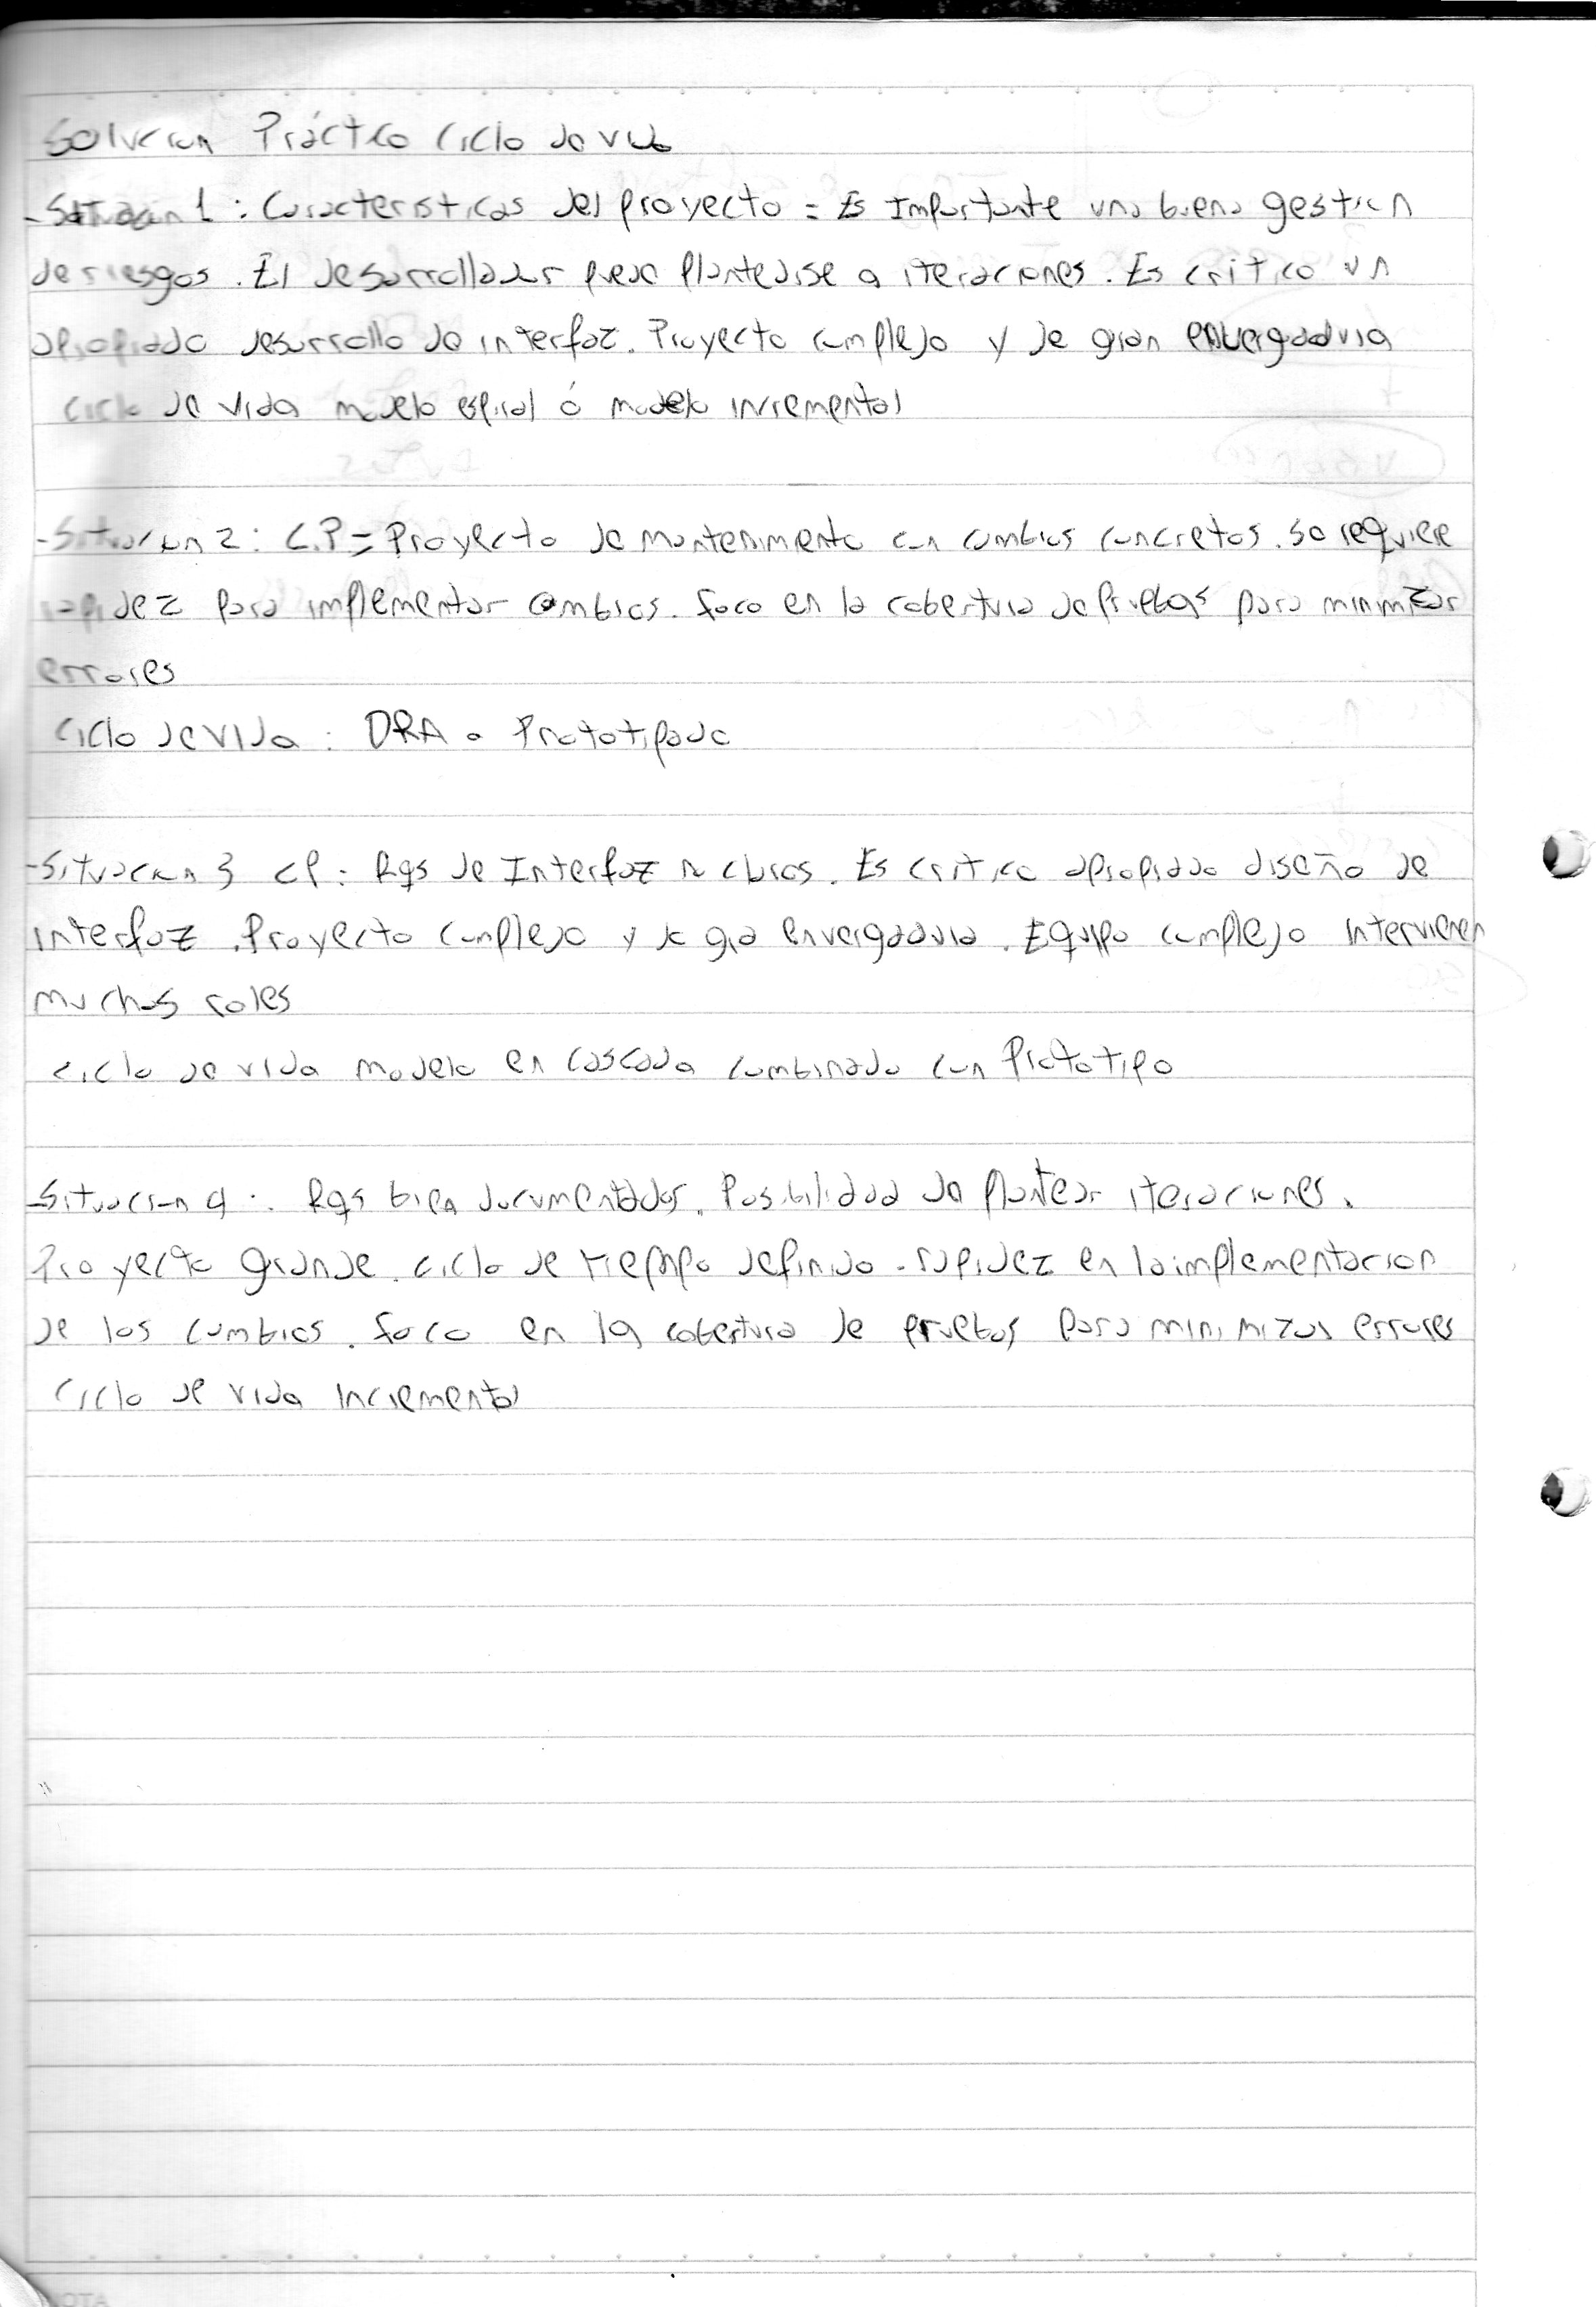 Solucion Práctico Ciclo de vida
-Situacion 1 : Caracteristicas del proyecto = Es Importante una buena gestion
de riesgos. El desarrollador puede plantearse a iteraciones. Es critico un
apropiado desarrollo de interfaz. Proyecto complejo y de gran envergadura
ciclo de vida modelo espiral ó modelo incremental
-Situacion 2 : C.P = Proyecto de mantenimiento con cambios concretos. Se requiere
rapidez para implementar cambios. foco en la cobertura de pruebas para minimizar
errores
Ciclo de vida : DRA o Prototipado
-Situacion 3 CP : Rqs de Interfaz n claros. Es critico apropiado diseño de
interfaz. Proyecto complejo y de gra envergadura. Equipo complejo intervienen
muchos roles
ciclo de vida modelo en cascada combinado con Prototipo
-Situacion 4 : Rqs bien documentados. Posibilidad de plantear iteraciones.
Proyecto grande. ciclo de tiempo definido. rapidez en la implementacion
de los cambios. foco en la cobertura de pruebas para minimizar errores
Ciclo de vida incremental
NOTA